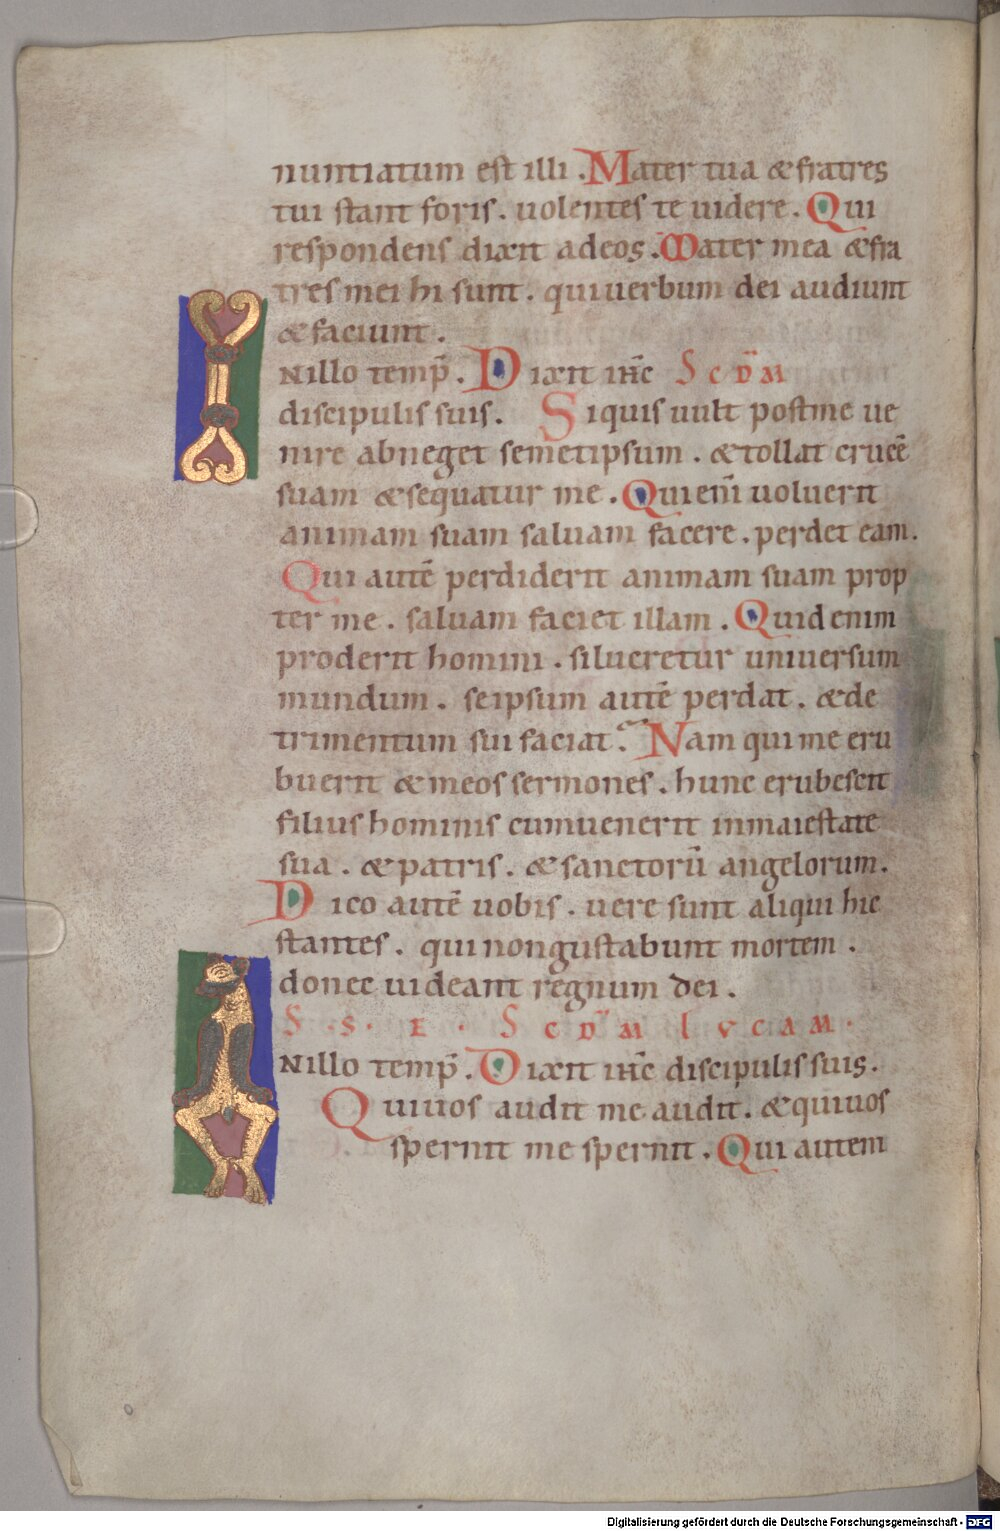 nuntiatum est illi. Mater tua & fratres
tui stant foris. uolentes te uidere. Qui
respondens dixit ad eos. Mater mea & fra
tres mei hi sunt. qui uerbum dei audiunt
& faciunt.
INillo temp̄. Dixit ihc̄ Scdm
discipulis suis. Si quis uult post me ue
nire abneget semetipsum. & tollat crucē
suam & sequatur me. Qui eni̅ uoluerit
animam suam saluam facere. perdet eam.
Qui autē perdiderit animam suam prop
ter me. saluam faciet illam. Quid enim
proderit homini. si lucretur uniuersum
mundum. se ipsum autē perdat. & de
trimentum sui faciat. Nam qui me eru
buerit & meos sermones. hunc erubescit
filius hominis cum uenerit in maiestate
sua. & patris. & sanctorū angelorum.
Dico autē uobis. uere sunt aliqui hic
stantes. qui non gustabunt mortem.
donec uideant regnum dei.
S. S. E. Scdm lucam.
INillo temp̄. Dixit ihc̄ discipulis suis.
Qui uos audit me audit. & qui uos
spernit me spernit. Qui autem
Digitalisierung gefördert durch die Deutsche Forschungsgemeinschaft - DFG